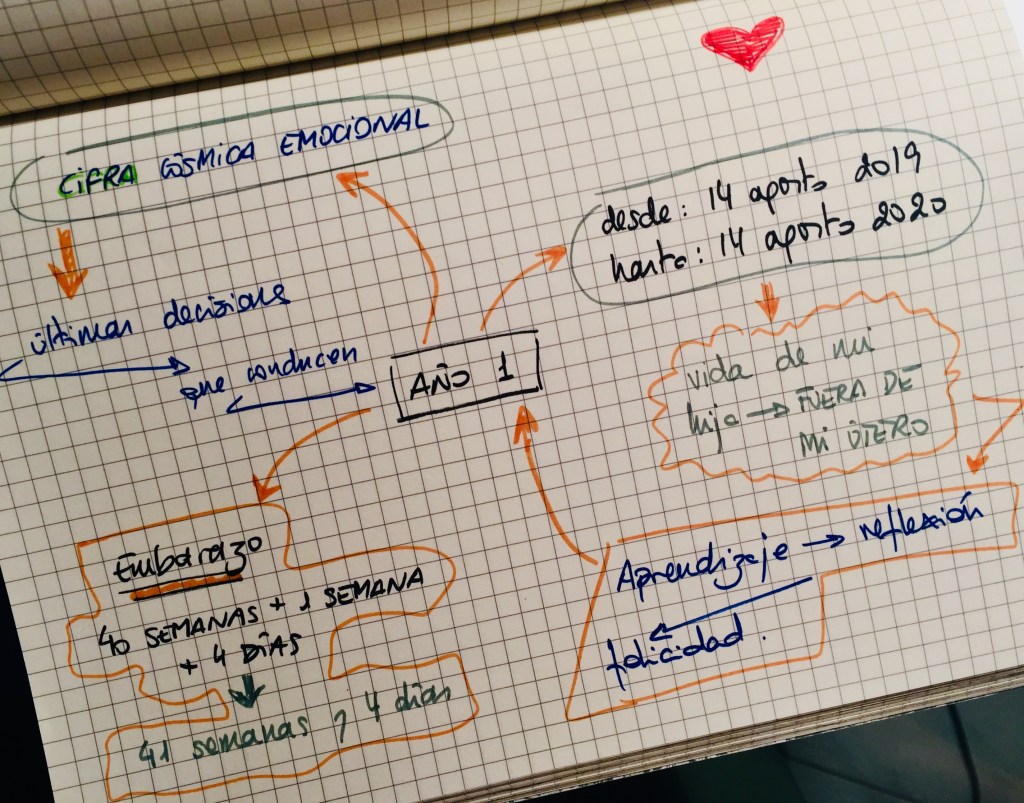 CIFRA CÓSMICA EMOCIONAL
desde: 14 agosto 2019
hasta: 14 agosto 2020
últimas decisiones
que conducen
AÑO 1
vida de mi
hija → FUERA DE
MI ÚTERO
Embarazo
40 SEMANAS + 1 SEMANA
+ 4 DÍAS
41 semanas y 4 días
Aprendizaje → reflexión
felicidad.